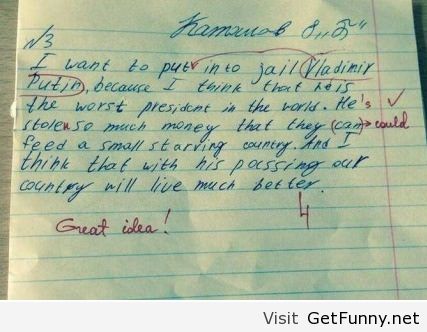 Катаилов 8 „Б"
№3
I want to put into jail Vladimir
Putin, because I think that he is
the worst president in the world. He's
stolen so much money that they can → could
feed a small starving country. And I
think that with his passing our
country will live much better.
4
Great idea!
Visit GetFunny.net